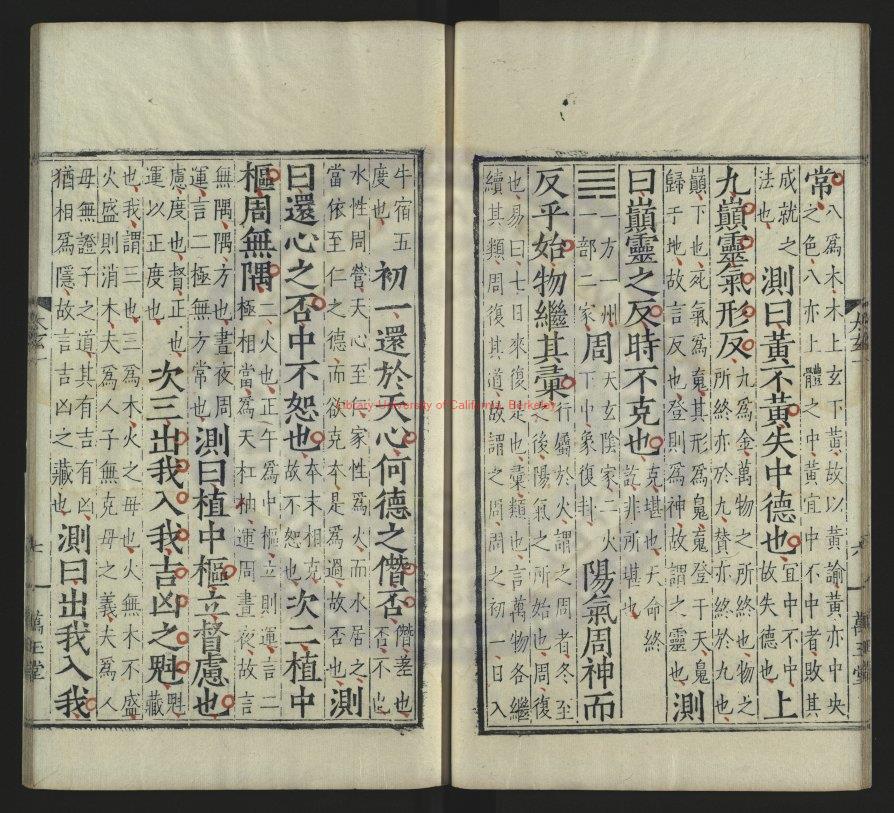 常八爲木木上玄下黃故以黃諭黃亦中央之色八亦上體之中黃宜中不中者敗其
成就之法也測曰黃不黃失中德也宜中不中故失德也上
九巔靈氣形反九爲金萬物之所終也物之所終亦於九贊亦終於九也
巔下也死氣爲䰟其形爲鬼䰟登于天鬼歸于地故言反也登則爲神故謂之靈也測
曰巔靈之反時不克也克堪也天命終訖非所堪也
一方一州一部二家周天玄陰家二火下中象復卦陽氣周神而
反乎始物繼其彚行屬於火謂之周者冬至之後陽氣之所始也周復
也易曰七日來復是也彚類也言萬物各繼續其類周復其道故謂之周周之初一日入
牛宿五度也初一還於天心何德之僭否僭差也否不也
水性周營天心至人家性爲火而水居之當依至仁之德而欲克本是爲過故否也測
曰還心之否中不恕也本末相克故不恕也次二植中
樞周無隅二火也正午爲中樞立則運言二極相當爲天杠柚運周晝夜故言
無隅隅方也晝夜周運言二極無方常也測曰植中樞立督慮也
慮度也督正也運以正度也次三出我入我吉凶之魁魁藏
也我謂三也三爲木火之母也火無木不盛火盛則消木夫爲人子無克母之義夫爲人
母無證子之道其有吉有凶猶相爲隱故言吉凶之藏也測曰出我入我
太玄
七
萬玉堂
Library University of California, Berkeley